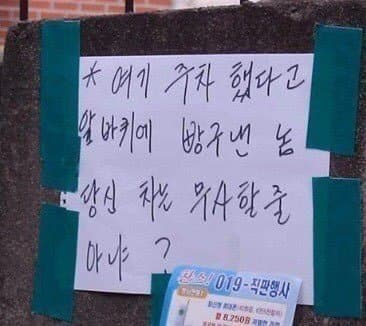 * 여기 주차 했다고
알바퀴에 빵구낸 놈
당신 차는 무사할줄
아냐 ?
019-직판행사
월 8,250원